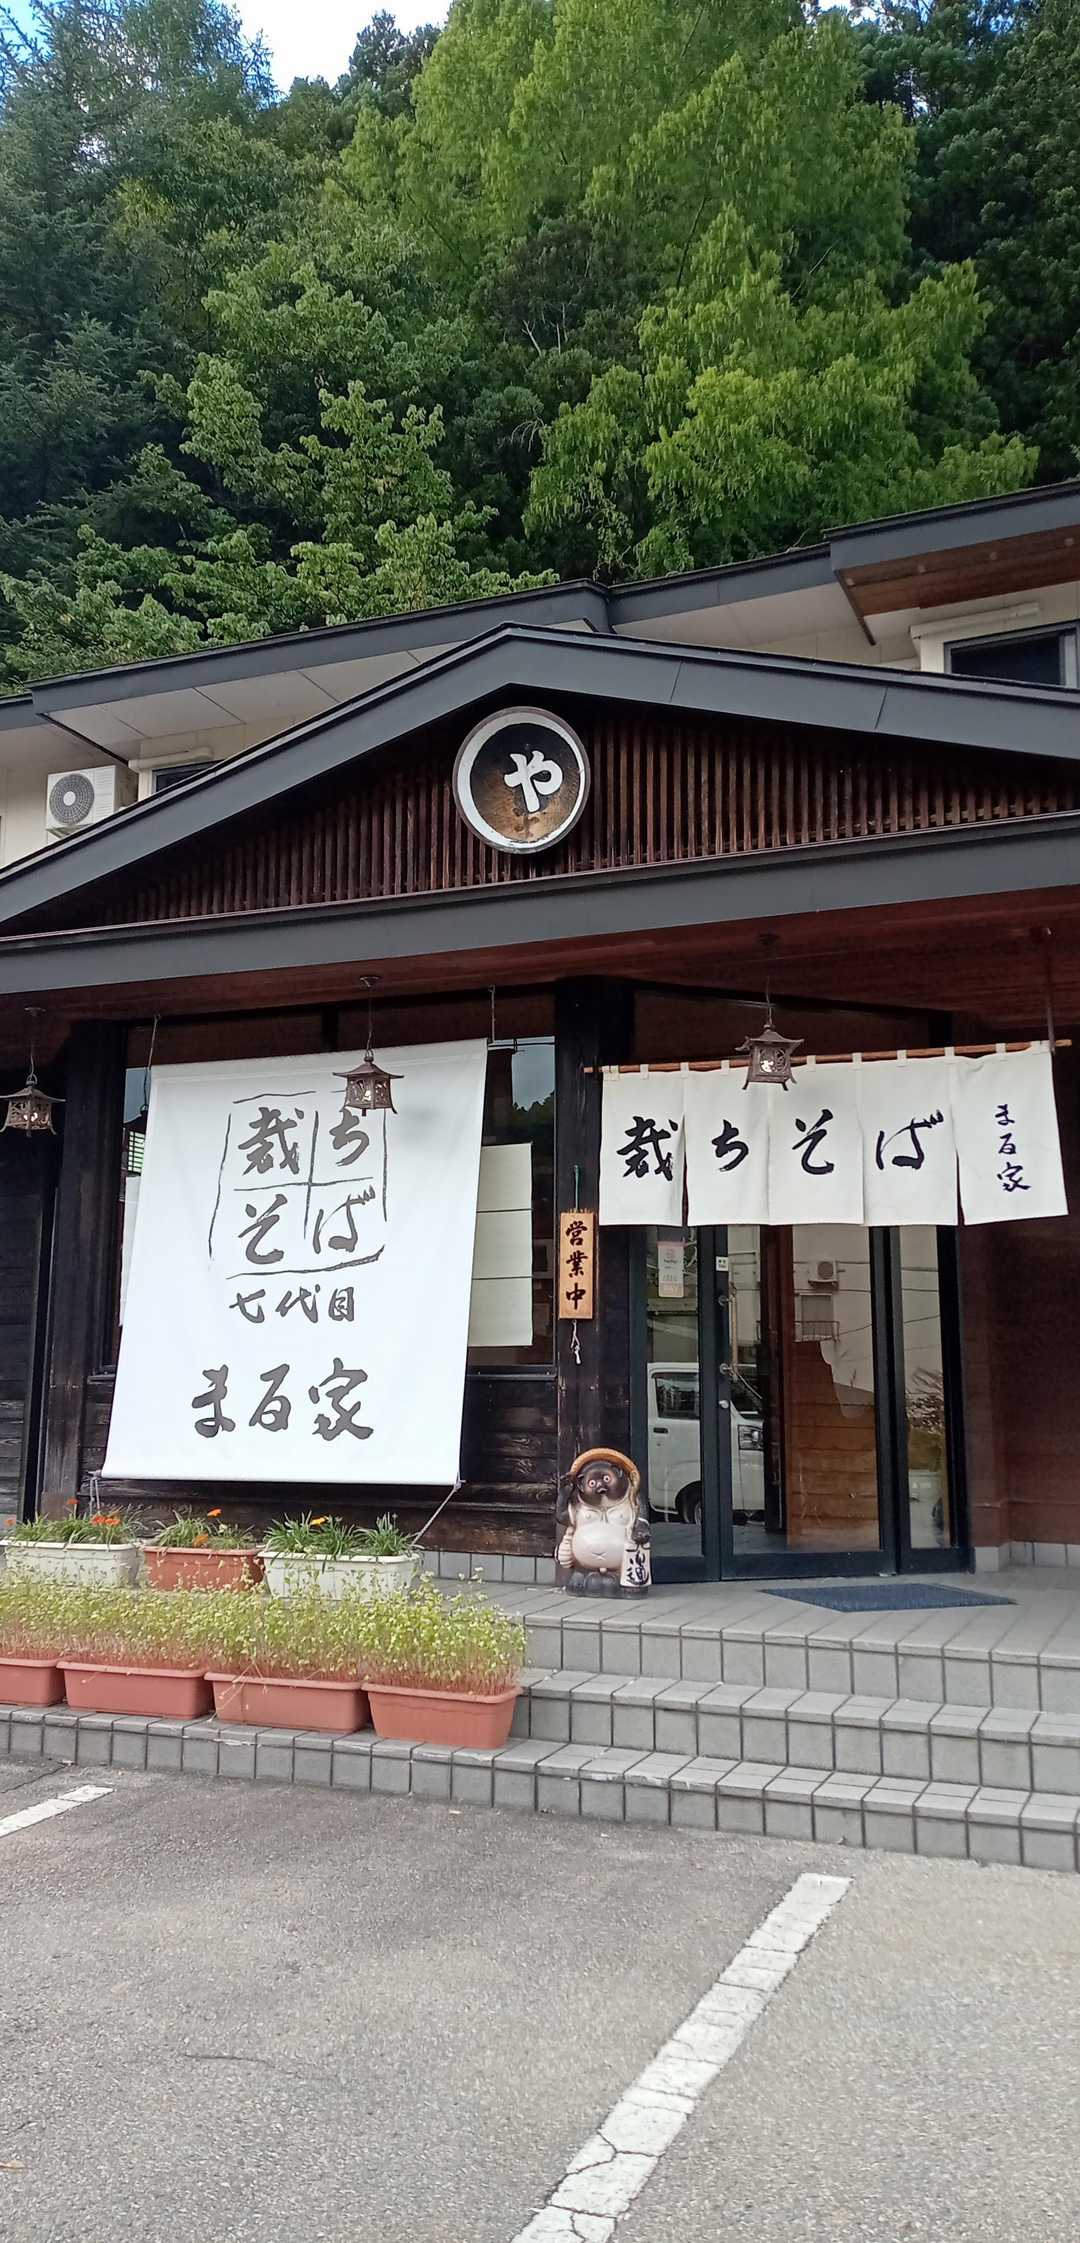 や
裁ちそば
まる家
裁ち
そば
七代目
まる家
営業中
通